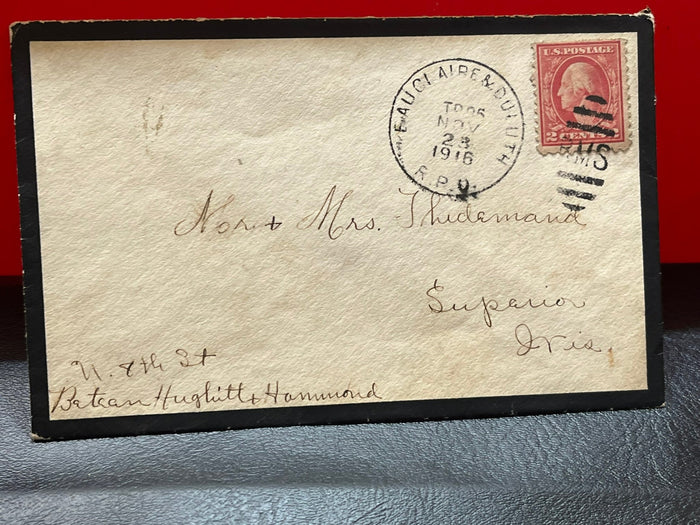 EAU CLAIRE & DULUTH
TR 95
NOV
23
1916
R.P.O.
U.S. POSTAGE
2 CENTS 2
RMS
Mr & Mrs. Thidemand
Superior
Wis.
N. 8th St
Betean Hughitt & Hammond